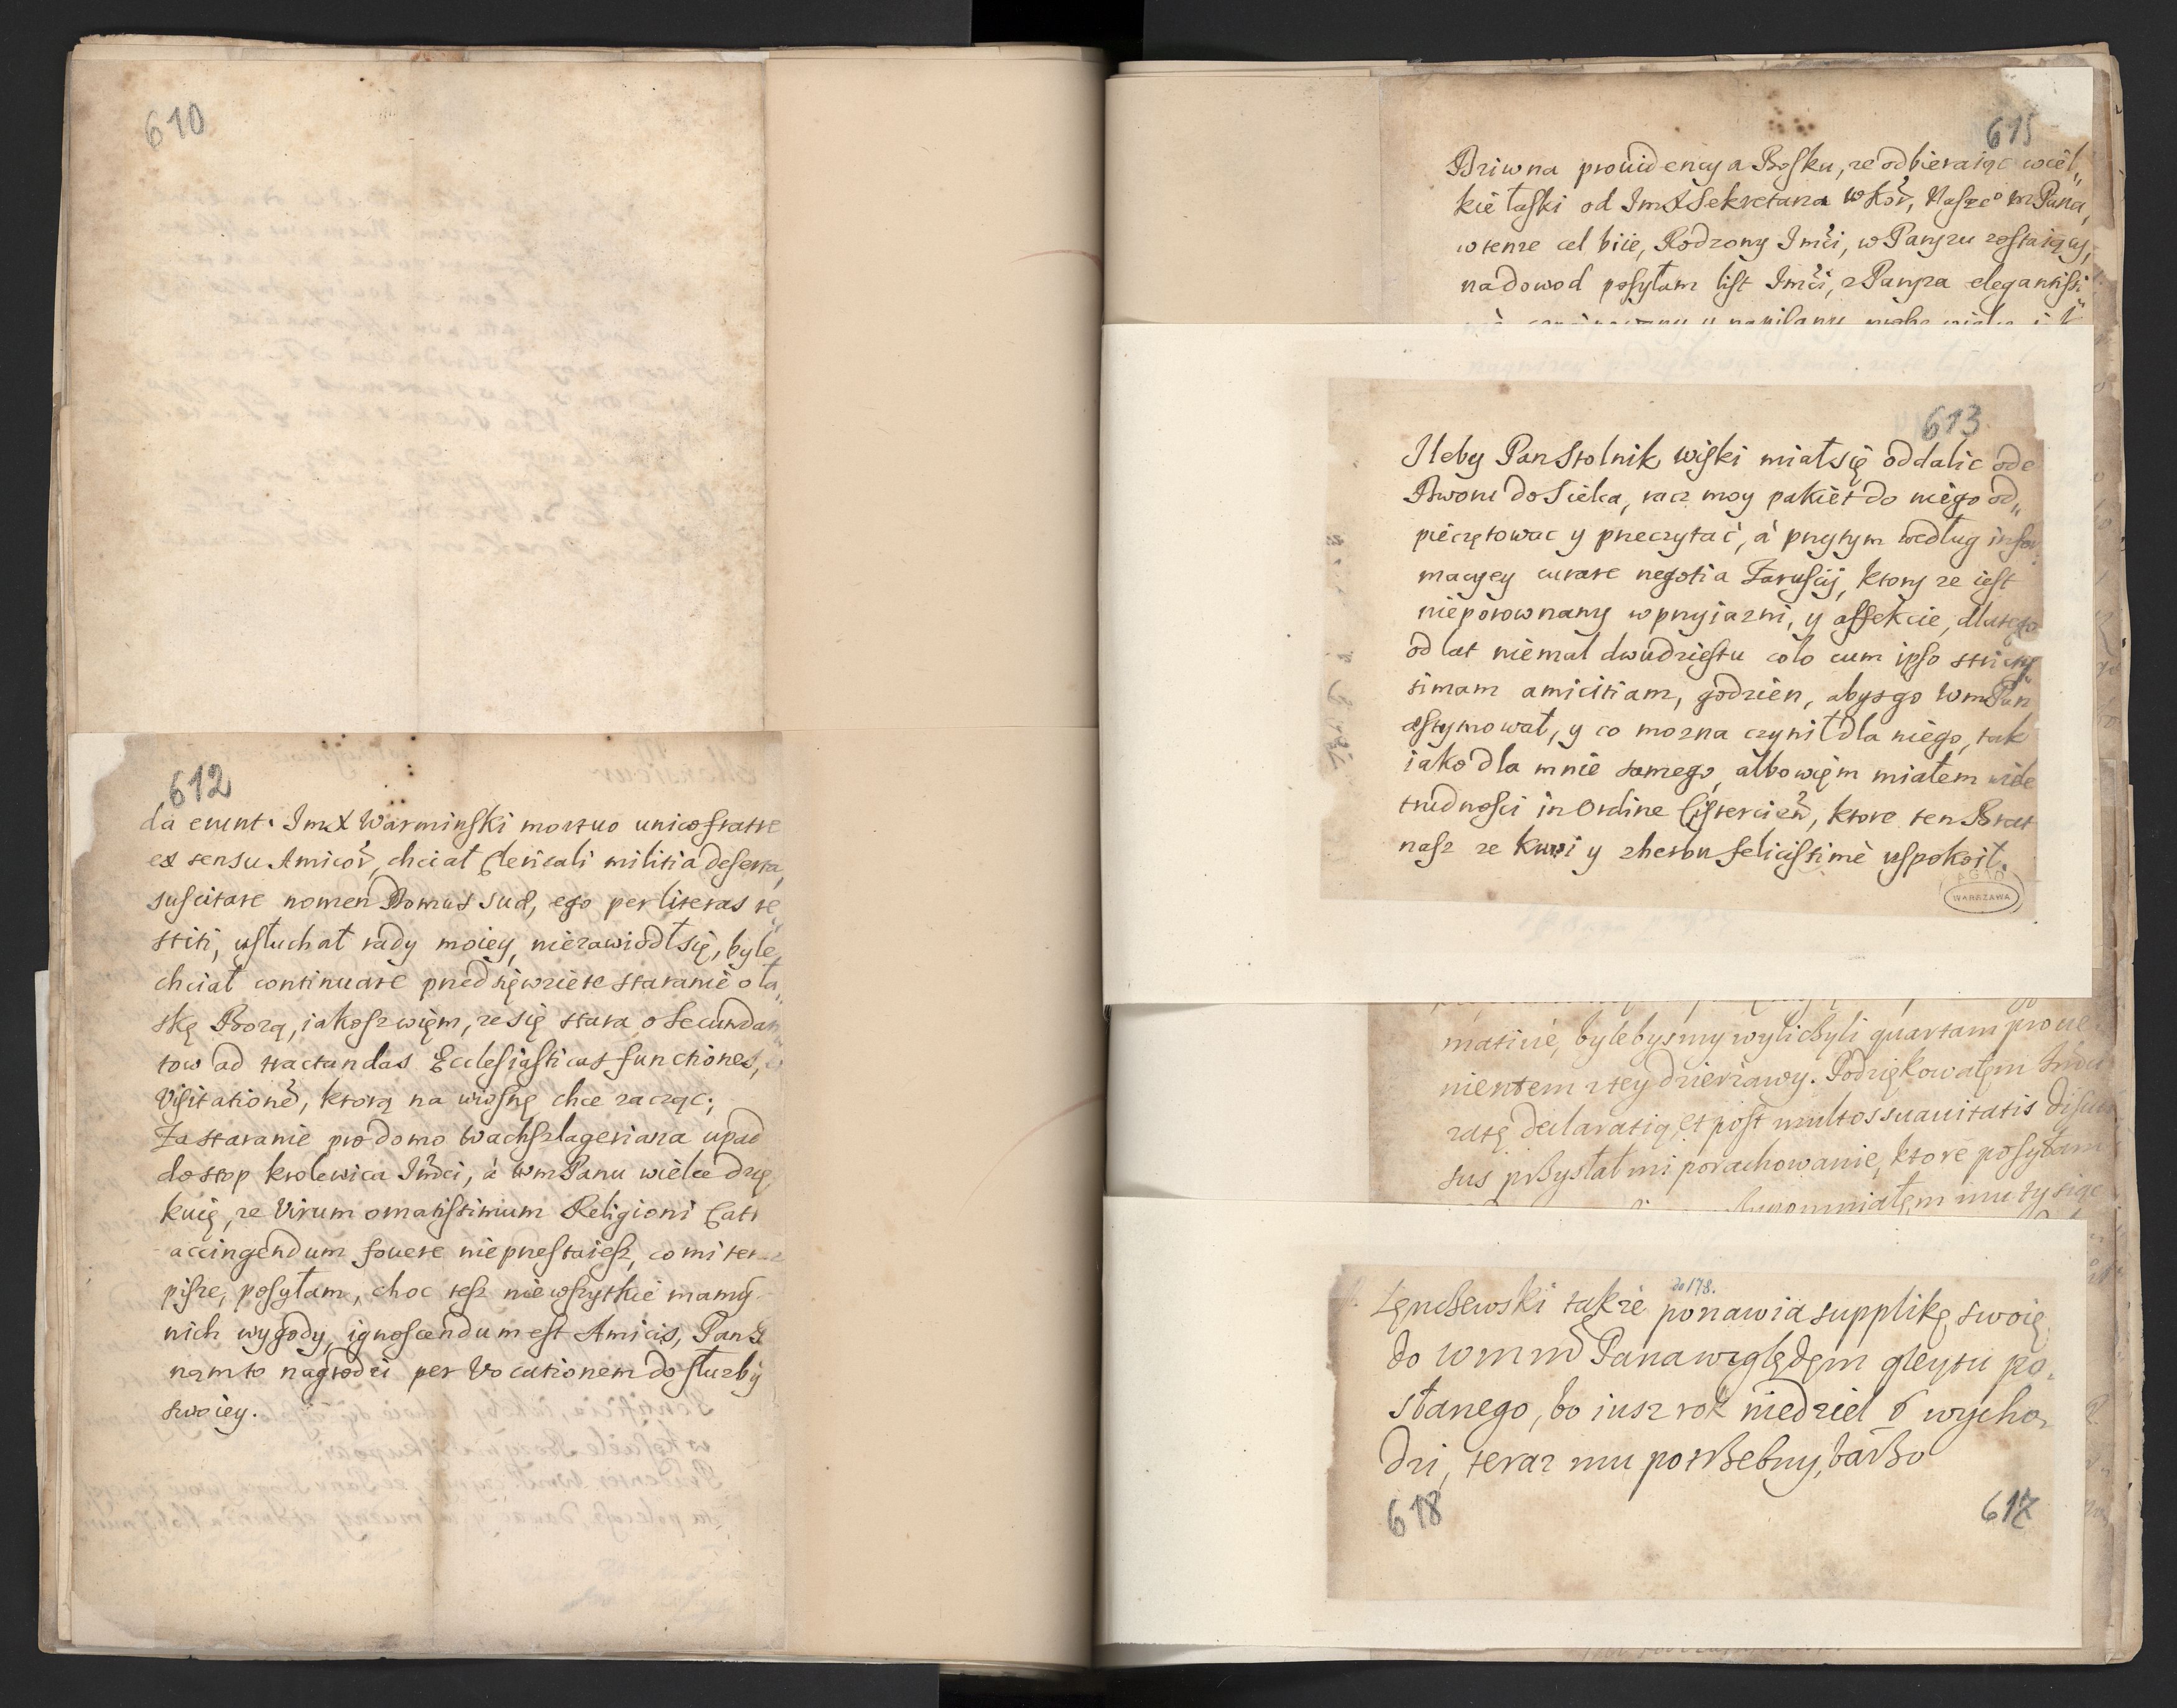 610
612
da erunt. ImX Warminski mortuo unico fratre
ex sensu Amicor, chciał Clericali militia deserta,
suscitare nomen Domus suæ, ego per literas re
stiti, usłuchał rady moiey, niezawiodł się, byle
chciał continuare przedsięwziete staranie o ła„
skę Bozą, iakosz więm, ze się stara o Secundan
tow ad tractandas Ecclesiasticas functiones,
Visitatione, ktorą na wiosnę chce zacząc;
Za staranie pro domo Wachszlageriana upad
do stop krolewica Imci, à WmPanu wielce dzię
kuię, ze Virum ornatissimum Religioni Cath
accingendum fovere nieprzestaiesz, co mi
pisze, posyłam, choc tesz niewszytkie mamy
nich wygody, ignoscendum est Amicis, Pan
nam to nagrodzi per Vocationem do służby
swoiey.
615
Dziwna providencya Boska, ze odbieraiąc wiel„
kie łaski od ImX Sekretarza WKor, Naszeo mPana,
w tenze cel biie, Rodzony Imci, w Paryzu zostaiący,
na dowod posyłam list Imci, z Paryza elegantissi
613
Ileby Pan Stolnik Wiski miał się oddalic ode
Dworu do Sielca, racz moy pakiet do niego od„
pieczętowac y przeczytać, á przytym według infor
macyey curare negotia Zarusÿ, ktory ze iest
nieporownany w przyiazni, y affekcie, dlatego
od lat niemal dwudziestu colo cum ipso stricty
simam amicitiam, godzien, abys go WmPan
æstymował, y co mozna czynił dla niego, tak
iako dla mnie samego, albowięm miałem wiele
trudnosci in Ordine Cisterciem, ktore ten Brat
nasz ze krwi y zherbu felicissimè uspokoił.
AGAD
WARSZAWA
matiue, bylebysmy wyliczyli quartam proue
nientem z tey dzierzawy. Podziękowałęm
zatę declaratią, et post multos suauitatis discur
sus przysłał mi porachowanie, ktore posyłam
mu tysiąc
do 178.
także ponawia supplikę swoię
do Wmm Pana względęm gleytu po„
słanego, bo iusz rok niedziel 6 wycho„
dzi, teraz mu potrzebny, barzo
618
617